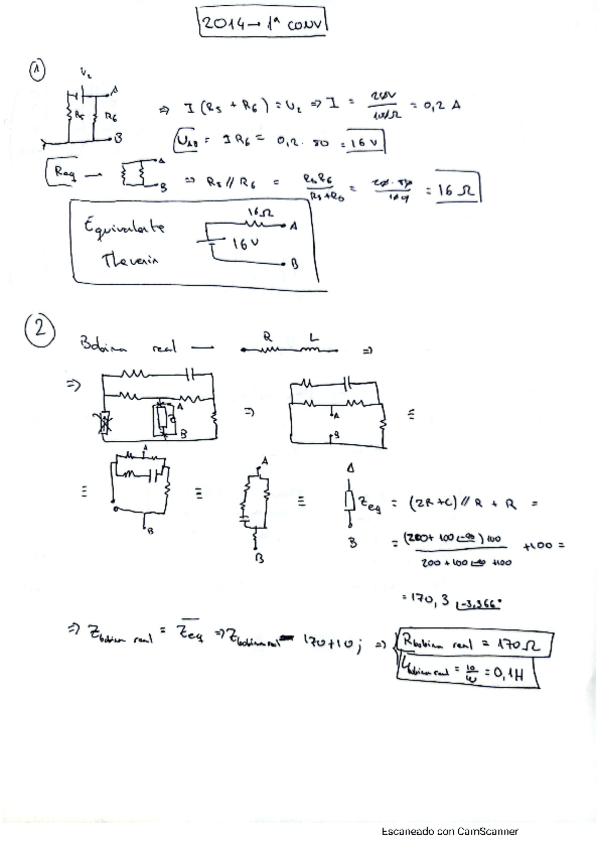 2014 → 1ª CONV
1
U₂
A
R₅ R₆
B
⇒ I (R₅ + R₆) = U₂ ⇒ I = 20V / 100Ω = 0,2 A
U_AB = I R₆ = 0,2 · 80 = 16 V
Req → A B ⇒ R₅ // R₆ = R₅R₆ / R₅+R₆ = 20·80 / 100 = 16 Ω
Equivalente
Thevenin
16Ω
A
16V
B
2
Bobina real — R L ⇒
⇒ A B ⇒ A B ≡
≡ A B ≡ A B ≡ A B Zeq = (2R+C) // R + R =
= (200 + 100∠-90)100 / 200 + 100∠-90 + 100 + 100 =
= 170,3 ∠-3,366°
⇒ Z bobina real = Zeq ⇒ Z bobina real = 170 + 10j ⇒ R bobina real = 170 Ω
L bobina real = 10/ω = 0,1H
Escaneado con CamScanner